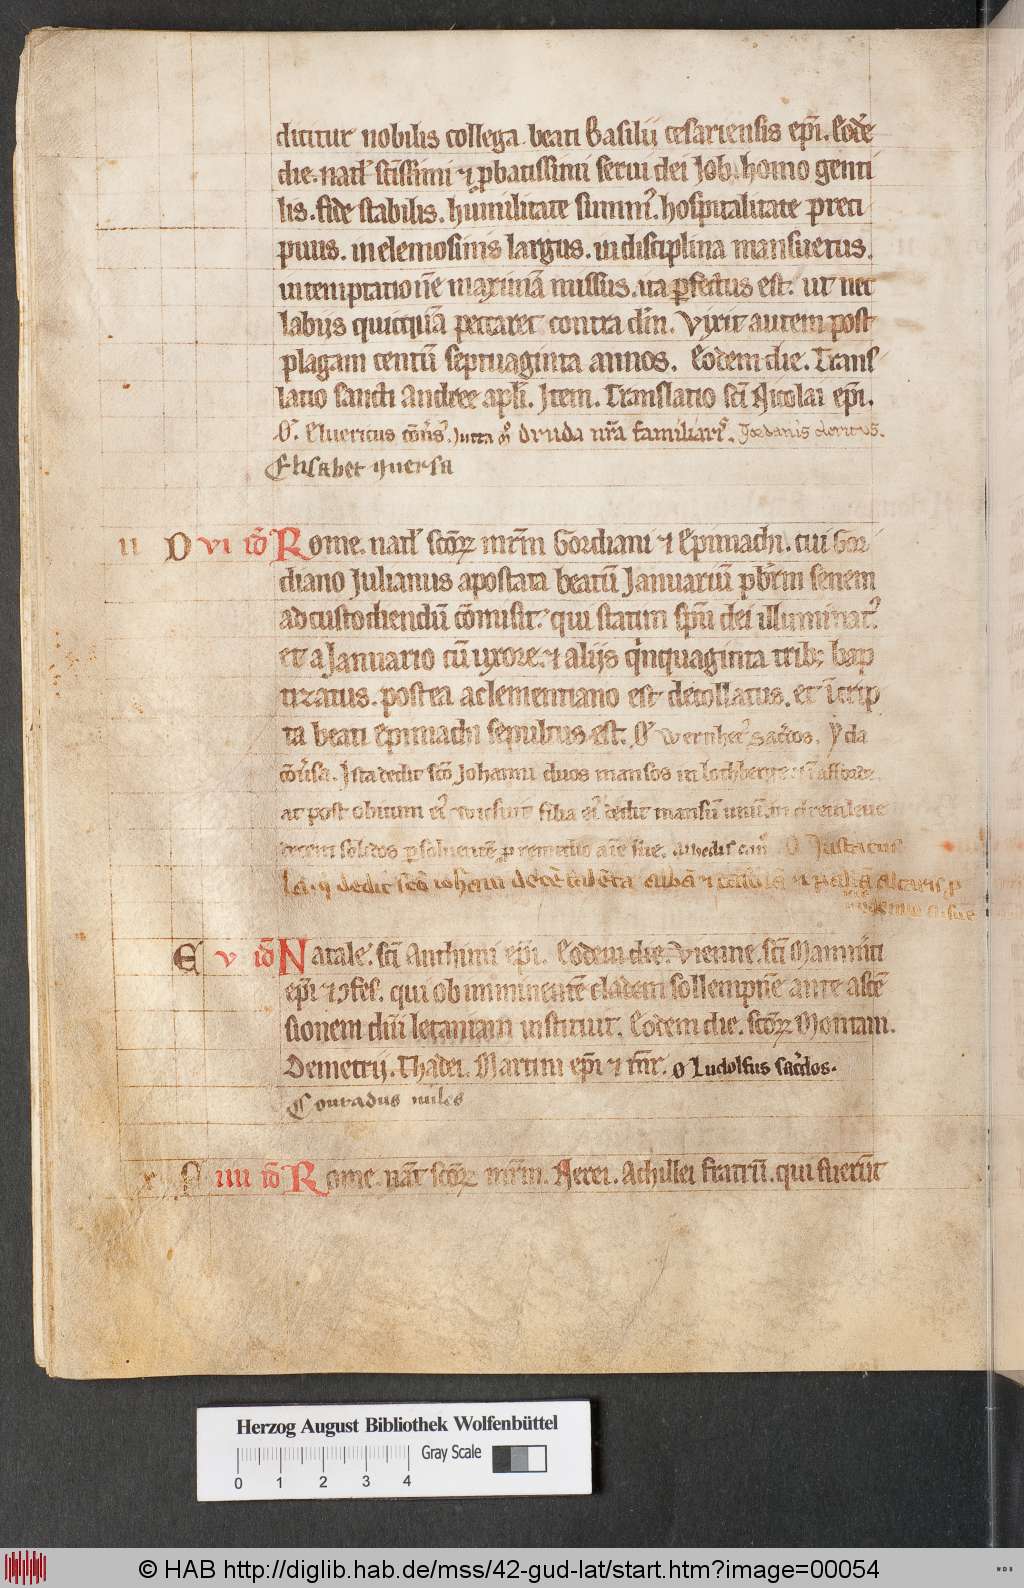 dicitur nobilis collega beati Basilij cesariensis ep̄i. Eodē
die. natł sc̄issimi ⁊ ꝓbatissimi serui dei Job. homo genti
lis. fide stabilis. humilitate summꝰ. hospitalitate preci
puus. in elemosinis largus. in disciplina mansuetus.
in temptatione maximā missus. ita ꝑfectus est. ut nec
labijs quicquā peccaret contra dn̄m. Vixit autem post
plagam centū septuaginta annos. Eodem die. Trans
latio sancti Andree apłi. Item. Translatio sc̄i Nicolai ep̄i.
Oꝰ. Eluericus cōūsꝰ. Jutta druda nr̄a familiarꝰ. Jordanis clericus.
Elisabet quersa
ii D vi idꝰ Rome. natł sc̄oꝝ mr̄m Gordiani ⁊ Epimachi. cui Gor
diano Julianus apostata beatū Januariū pb̄rm senem
ad custodiendū cōmisit. qui statim sp̄u dei illuminatꝰ
et a Januario cū uxore. ⁊ alijs qͥnquaginta tribꝫ bap
tizatus. postea a clementiano est decollatus. et ī crip
ta beati Epimachi sepultus est. Oꝰ Wernherꝰ sac̄dos. Yda
cōūsa. Ista dedit sc̄o Johanni duos mansos in
at post obitum eiꝰ filia eiꝰ dedit mansū unū. in
decem solidos ꝑsoluentē ꝓ remedio aīe sue.
dedit sc̄o ioh̄anni decē talēta albā ⁊ casulā ⁊ pallā altaris ꝓ
E v idꝰ Natale. sc̄i Anthimi ep̄i. Eodem die. Vienne. sc̄i Mammerti
ep̄i ⁊ ɔfes. qui ob imminentē cladem sollempne ante ascē
sionem dn̄i letaniam instituit. Eodem die. sc̄oꝝ Montani.
Demetrij. Thadei. Martini ep̄i ⁊ m̄r. O Ludolfus sac̄dos.
Conradus miles
x F iiii idꝰ Rome. nat̄ sc̄oꝝ mr̄m. Nerei. Achillei fratrū. qui fuerūt
Herzog August Bibliothek Wolfenbüttel
Gray Scale
0 1 2 3 4
© HAB http://diglib.hab.de/mss/42-gud-lat/start.htm?image=00054